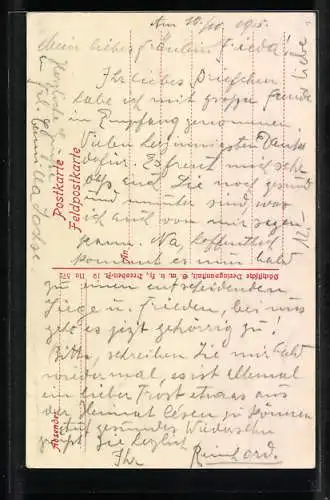 Am 10. 10. 1915.
Mein liebes Fräulein Frieda!
Ihr liebes Briefchen
habe ich mit großer Freude
in Empfang genommen.
Vielen herzinnigsten Dank
dafür. Es freut mich sehr
daß Sie noch gesund
und munter sind, was
ich auch von mir sagen
kann. Na, hoffentlich
kommt es nun bald
zu einem entscheidenden
Siege u. Frieden, bei uns
geht es jetzt gehörig zu!
Bitte, schreiben Sie mir bald
wiedermal, es ist allemal
ein lieber Trost etwas aus
der Heimat lesen zu können
Auf gesundes Wiedersehn
grüßt Sie herzlich
Ihr Reinhard.
Herzliche Grüße
u. Frl.
Liebe
12.-
Postkarte
Feldpostkarte
An
Sächsische Verlagsanstalt, G. m. b. H., Dresden-A. 19
Absender